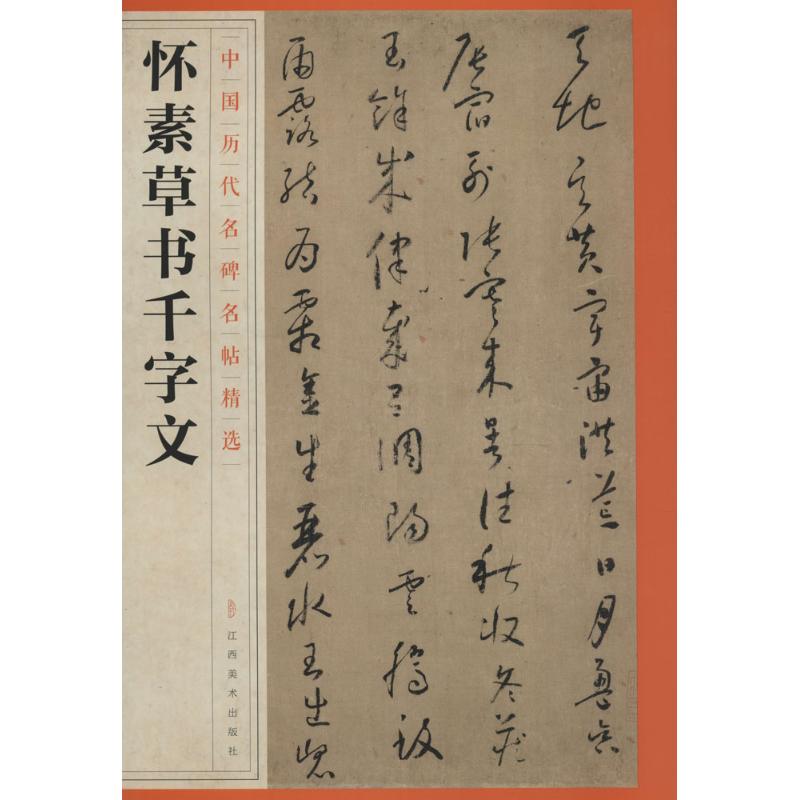 怀素草书千字文
中国历代名碑名帖精选
江西美术出版社
天地玄黄宇宙洪荒日月盈昃
辰宿列張寒来暑往秋收冬藏
閏餘成律歲吕調陽雲騰致
雨露結為霜金生麗水玉出崑